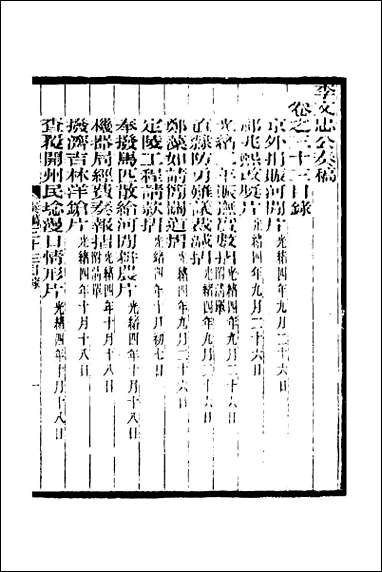 李文忠公奏稿
卷之三十三目錄
京外捐賑河間片 光緒四年九月二十六日
邵兆熙改獎片 光緒四年九月二十六日
光緒二年賑撫官數摺 附清單 光緒四年九月二十六日
直隸防勇難議裁減摺 光緒四年九月二十六日
鄭藻如請簡關道摺 光緒四年九月二十六日
定陵工程請款摺 光緒四年十月初七日
奉撥馬匹散給河間耕農片 光緒四年十月十八日
機器局經費奏報摺 附清單 光緒四年十月十八日
撥濟吉林洋鎗片 光緒四年十月十八日
查覆開州民埝漫口情形片 光緒四年十月十八日
奏稿三十三目錄
一